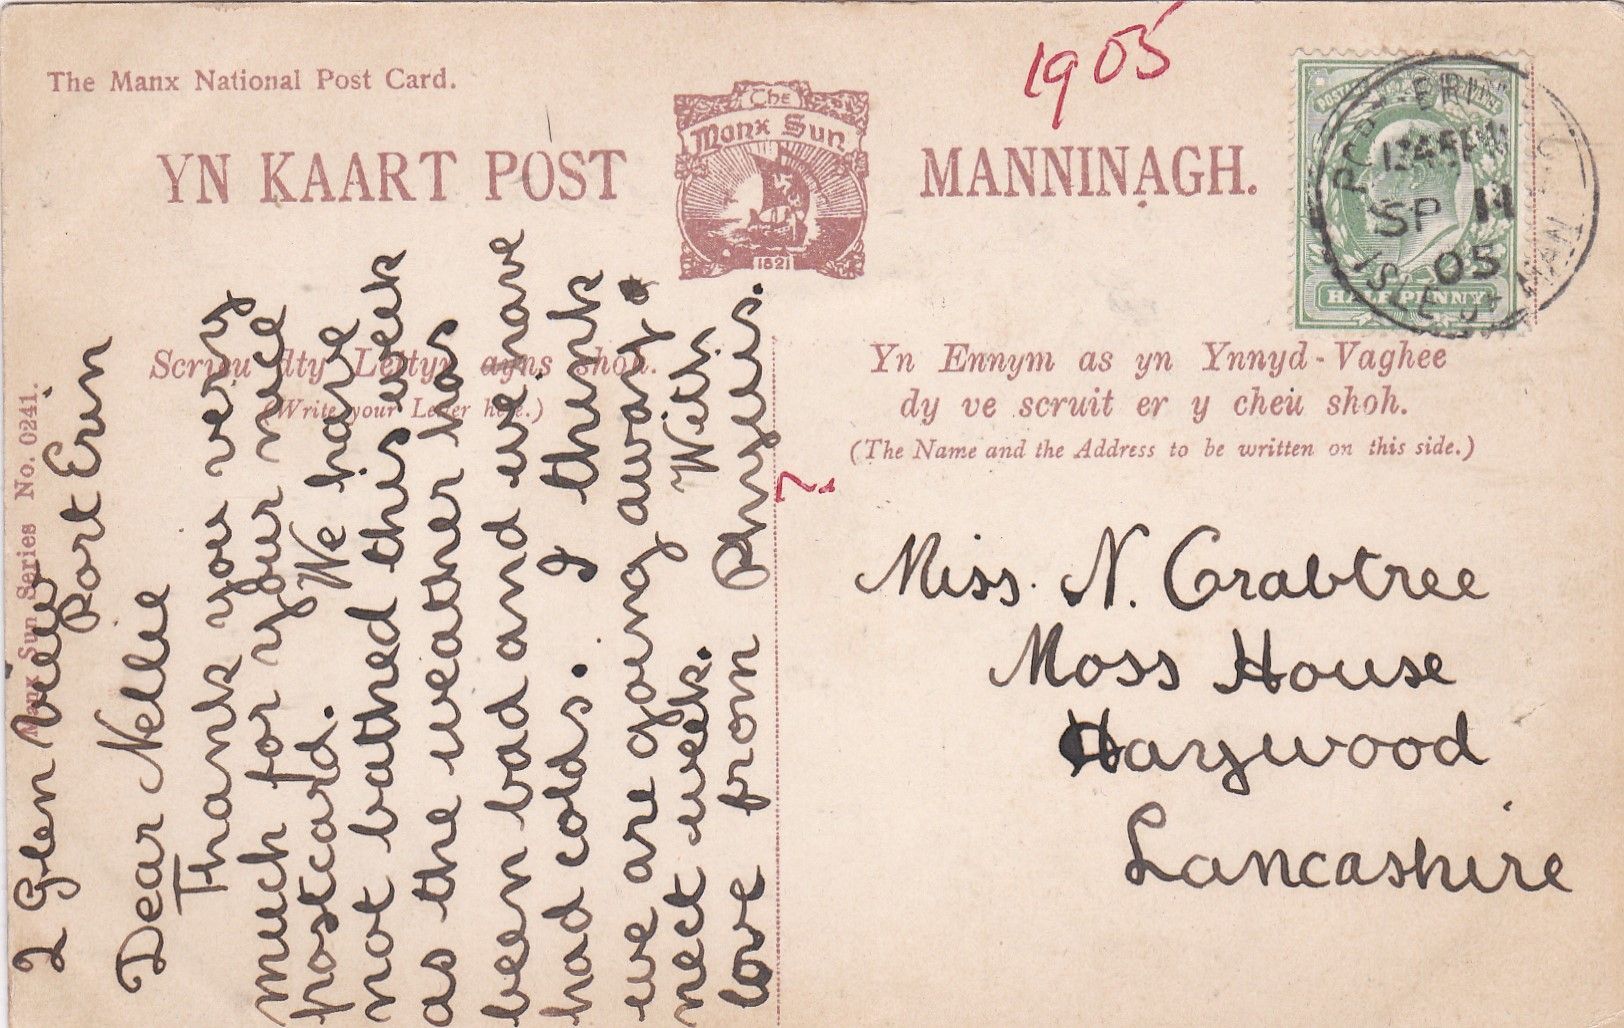 1905
The Manx National Post Card.
YN KAART POST
The
Manx Sun
1821
MANNINAGH.
PORT ERIN
12.45 PM
SP 11
05
ISLE OF MAN
HALFPENNY
Scrieu dty Lettyr ayns shoh.
(Write your Letter here.)
Yn Ennym as yn Ynnyd-Vaghee
dy ve scruit er y cheu shoh.
(The Name and the Address to be written on this side.)
Manx Sun Series No. 0241.
2 Glen View
Port Erin
Dear Nellie
Thank you very
much for your nice
postcard. We have
not bathed this week
as the weather has
been bad and we have
had colds. I think
we are going away
nect week. With
love from Phyllis.
Miss. N. Crabtree
Moss House
Haywood
Lancashire